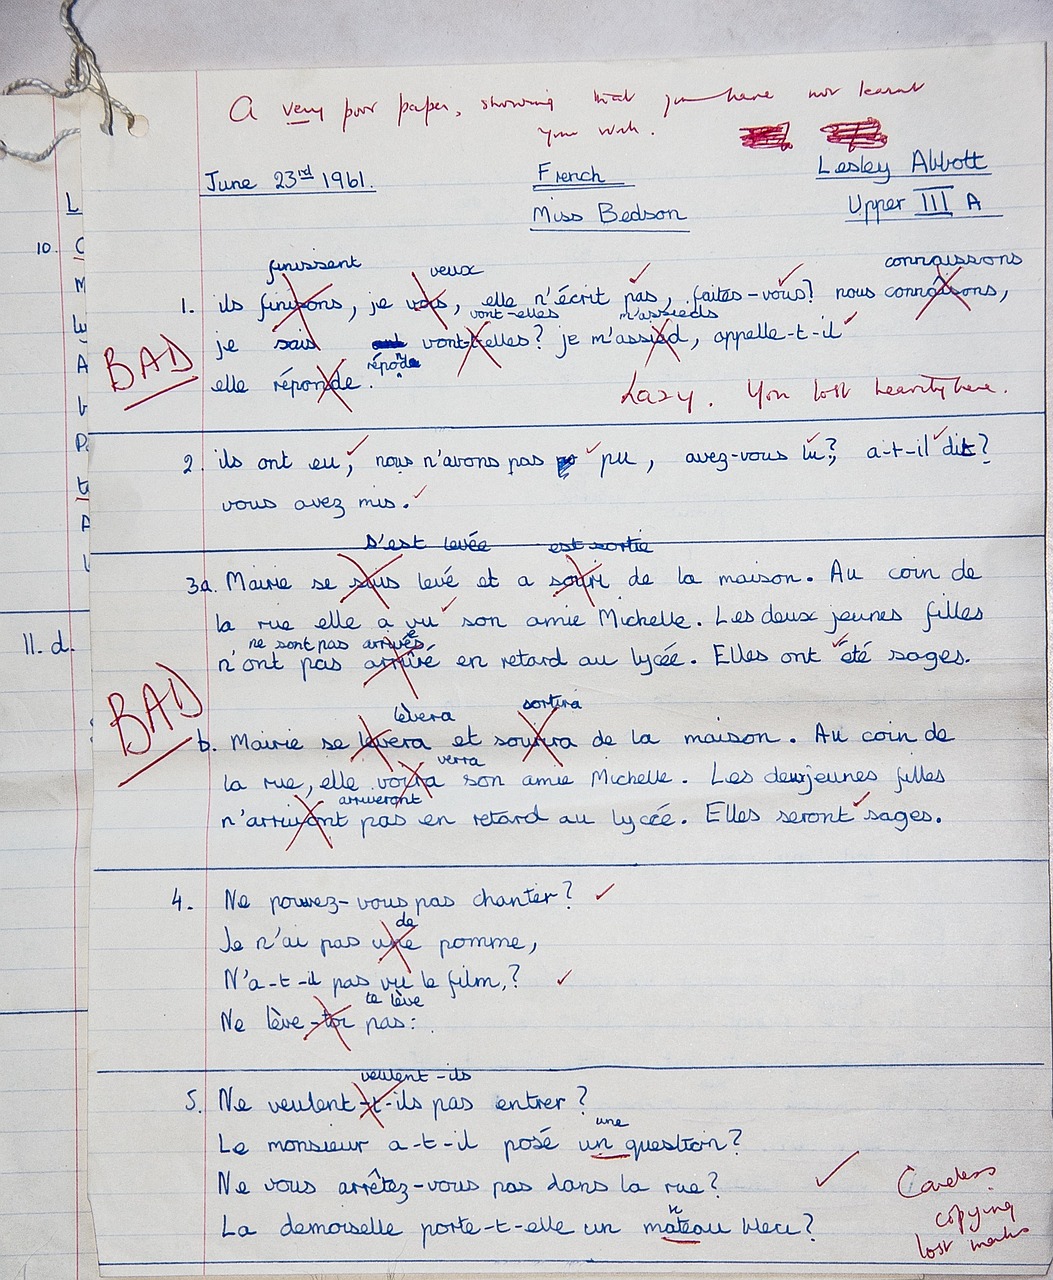 A very poor paper, showing that you have not learnt
your work.
June 23rd 1961.
French
Lesley Abbott
Miss Bedson
Upper III A
L
10. C
M
A
P
A
11. d.
finissent veux connaissons
1. ils finisons, je vois, elle n'écrit pas, faites-vous? nous connaisons,
vont-elles m'assieds
je sais vont-t-elles? je m'assied, appelle-t-il
BAD
réponde
elle réponde.
Lazy. You lost heavily here.
2. ils ont eu, nous n'avons pas pu, avez-vous lu?, a-t-il dit?
vous avez mis.
s'est levée est sortie
3a. Mairie se suis levé et a souri de la maison. Au coin de
la rue elle a vu son amie Michelle. Les deux jeunes filles
ne sont pas arrivées
n'ont pas arrivé en retard au lycée. Elles ont été sages.
BAD
lèvera sortira
b. Mairie se levera et sourira de la maison. Au coin de
verra
la rue, elle voira son amie Michelle. Les deux jeunes filles
arriveront
n'arriviont pas en retard au lycée. Elles seront sages.
4. Ne pouvez-vous pas chanter?
de
Je n'ai pas une pomme,
N'a-t-il pas vu le film,?
te lève
Ne lève-toi pas:.
veulent-ils
5. Ne veulent-t-ils pas entrer?
une
Le monsieur a-t-il posé un question?
Ne vous arrêtez-vous pas dans la rue?
n
La demoiselle porte-t-elle un mateau bleu?
Careless
copying
lost marks